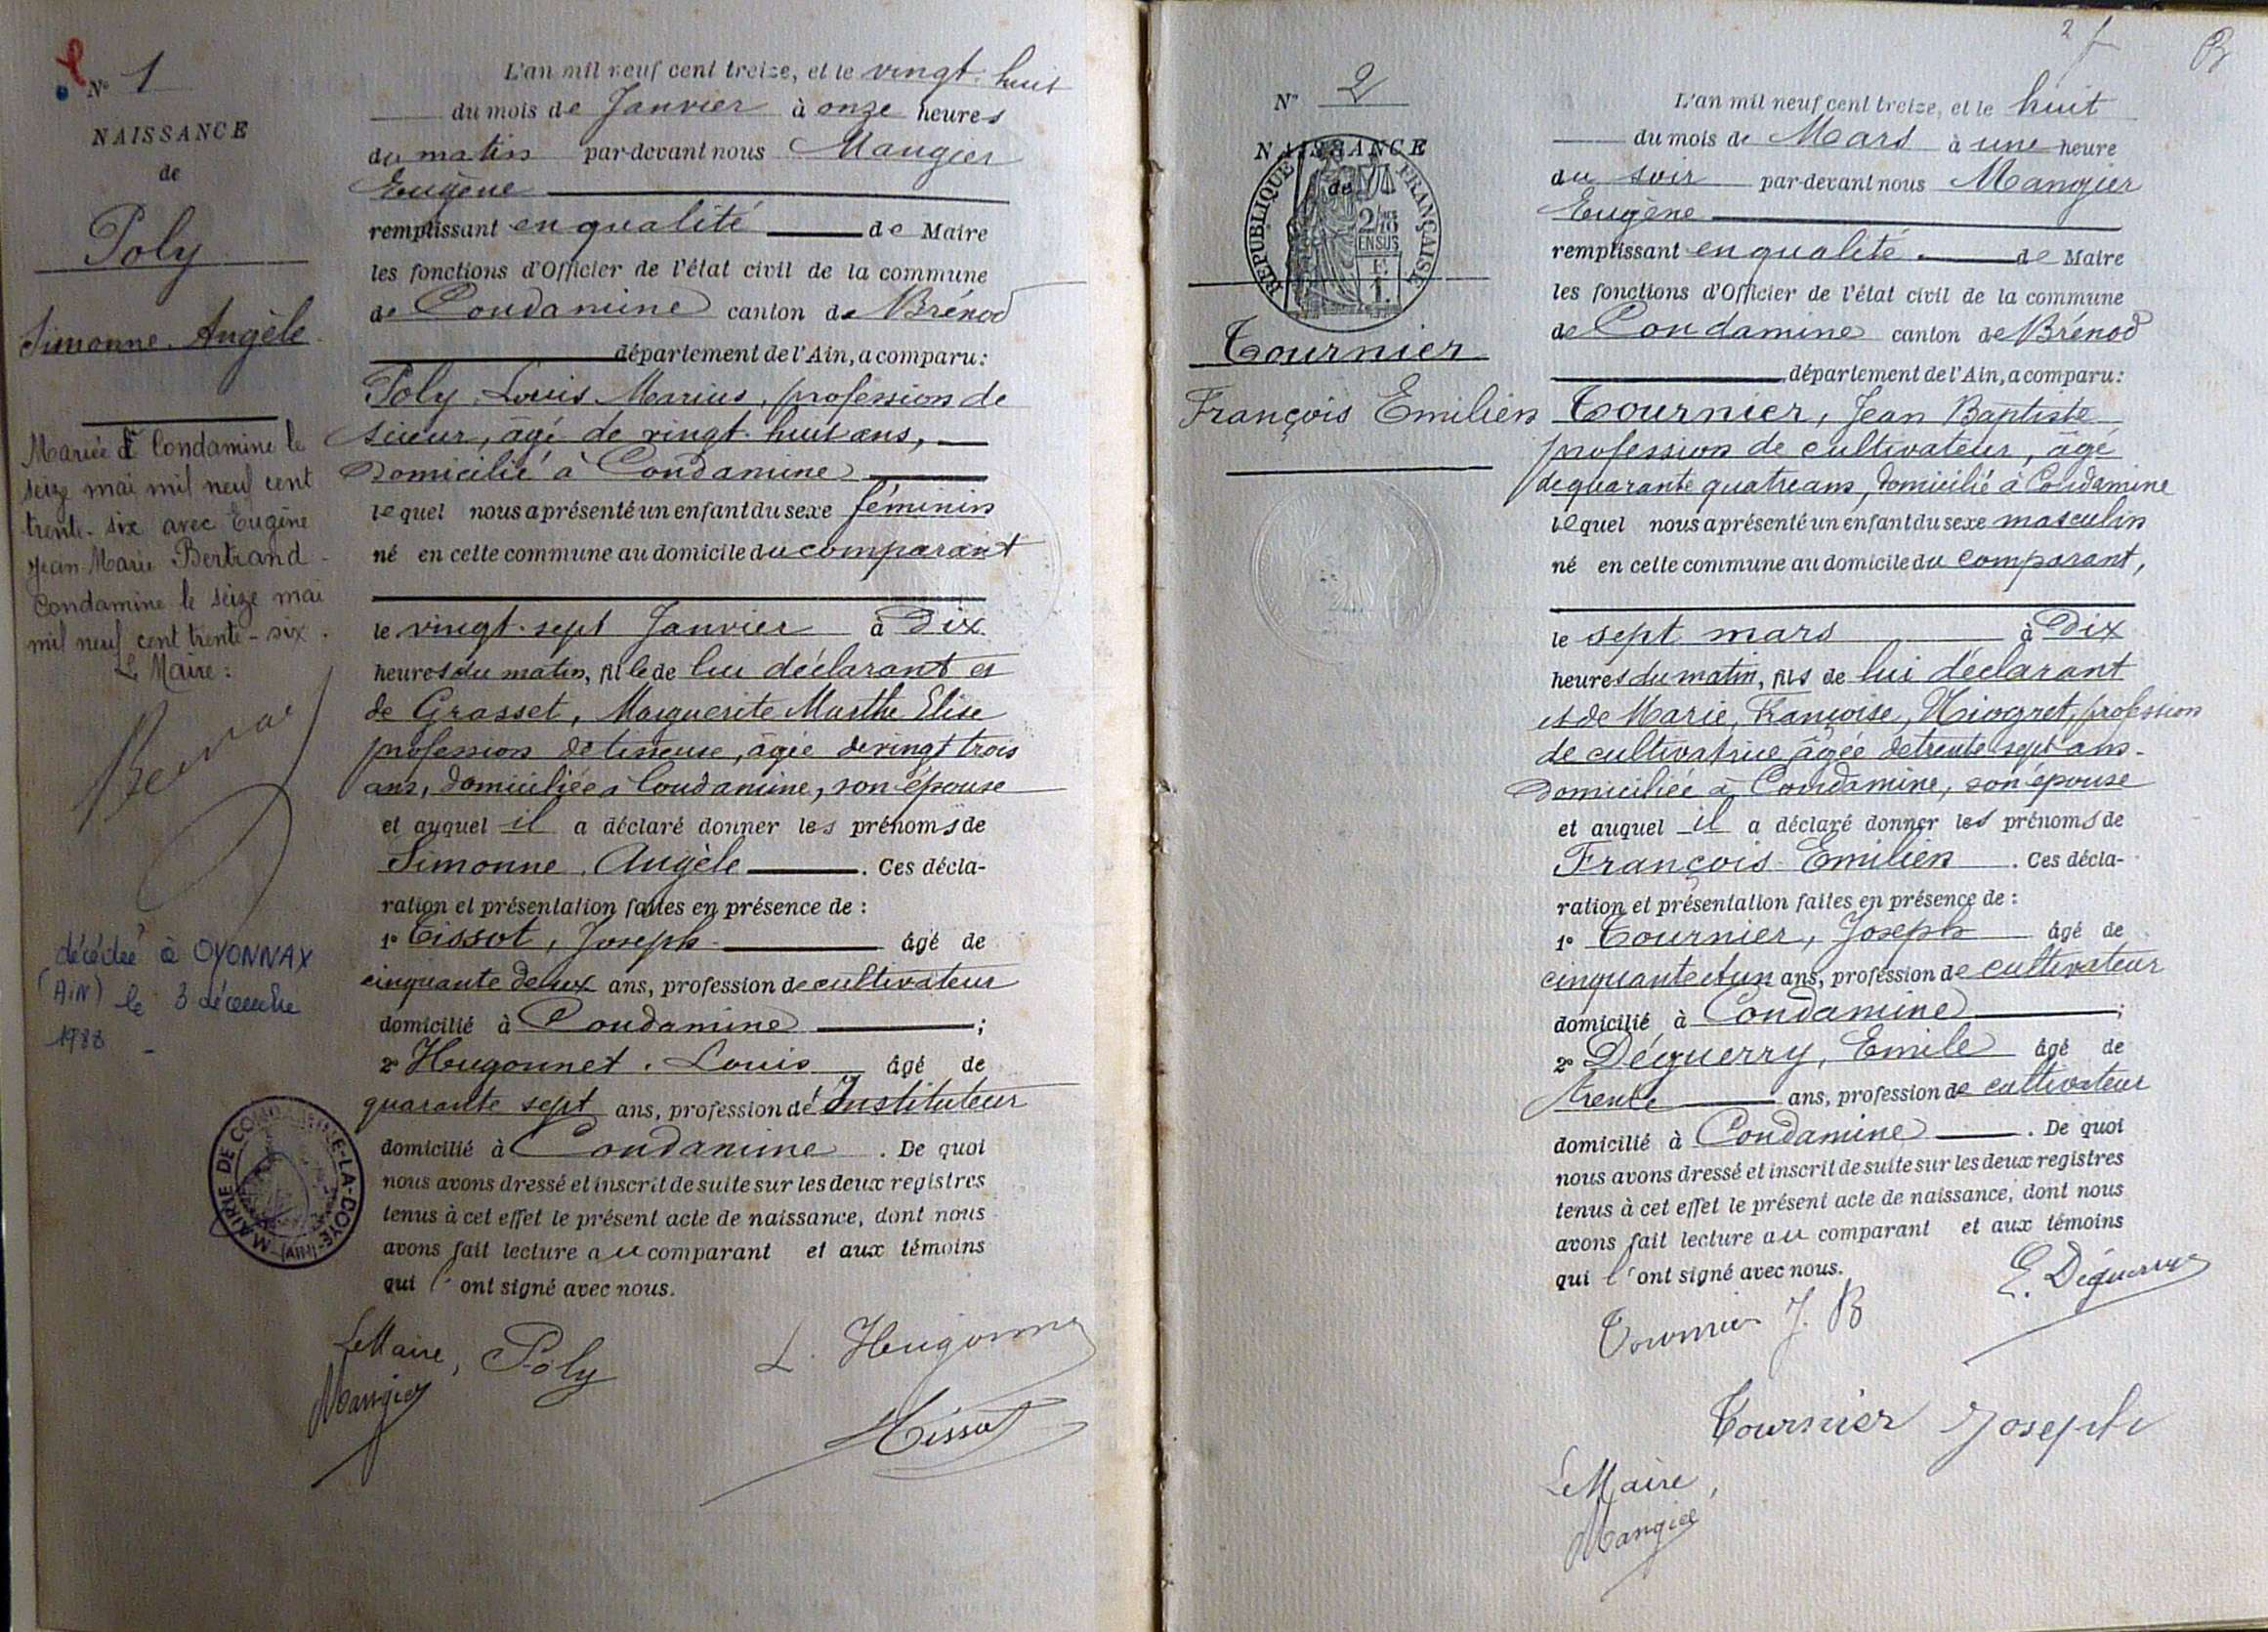 Nº 1
NAISSANCE
de
Poly
Simonne Angèle
Mariée à Condamine le
seize mai mil neuf cent
trente-six avec Eugène
Jean Marie Bertrand
Condamine le seize mai
mil neuf cent trente-six.
Le Maire:
décédée à OYONNAX
(AIN) le 3 décembre
MAIRIE DE CONDAMINE-LA-DOYE (AIN)
L'an mil neuf cent treize, et le vingt-huit
du mois de Janvier à onze heures
du matin par-devant nous Mangier
Eugène
remplissant en qualité de Maire
les fonctions d'Officier de l'état civil de la commune
de Condamine canton de Brénod
département de l'Ain, a comparu:
Poly, Louis Marius, profession de
scieur, âgé de vingt-huit ans,
domicilié à Condamine
lequel nous a présenté un enfant du sexe féminin
né en cette commune au domicile du comparant
le vingt-sept Janvier à Dix
heures du matin, fille de lui déclarant et
de Grasset, Marguerite Marthe Elise
profession de tisseuse, âgée de vingt trois
ans, domiciliée à Condamine, son épouse
et auquel il a déclaré donner les prénoms de
Simonne, Angèle. Ces décla-
ration et présentation faites en présence de :
1º Tissot, Joseph âgé de
cinquante deux ans, profession de cultivateur
domicilié à Condamine ;
2º Hugonnet, Louis âgé de
quarante sept ans, profession d'Instituteur
domicilié à Condamine. De quoi
nous avons dressé et inscrit de suite sur les deux registres
tenus à cet effet le présent acte de naissance, dont nous
avons fait lecture au comparant et aux témoins
qui l'ont signé avec nous.
Le Maire, Poly L. Hugonnet
Mangier
Tissot
2
Nº 2
NAISSANCE
de
REPUBLIQUE FRANÇAISE
2/10
EN SUS
Tournier
François Emilien
L'an mil neuf cent treize, et le huit
du mois de Mars à une heure
du soir par-devant nous Mangier
Eugène
remplissant en qualité de Maire
les fonctions d'Officier de l'état civil de la commune
de Condamine canton de Brénod
département de l'Ain, a comparu:
Tournier, Jean Baptiste
profession de cultivateur, âgé
de quarante quatre ans, domicilié à Condamine
lequel nous a présenté un enfant du sexe masculin
né en cette commune au domicile du comparant,
le sept mars à Dix
heures du matin, fils de lui déclarant
et de Marie, Françoise, Niogret, profession
de cultivatrice âgée de trente-sept ans.
Domiciliée à Condamine, son épouse
et auquel il a déclaré donner les prénoms de
François-Emilien. Ces décla-
ration et présentation faites en présence de :
1º Tournier, Joseph âgé de
cinquante et un ans, profession de cultivateur
domicilié à Condamine ;
2º Déguerry, Emile âgé de
trente ans, profession de cultivateur
domicilié à Condamine. De quoi
nous avons dressé et inscrit de suite sur les deux registres
tenus à cet effet le présent acte de naissance, dont nous
avons fait lecture au comparant et aux témoins
qui l'ont signé avec nous.
E. Déguerry
Tournier J. B
Tournier Joseph
Le Maire,
Mangier